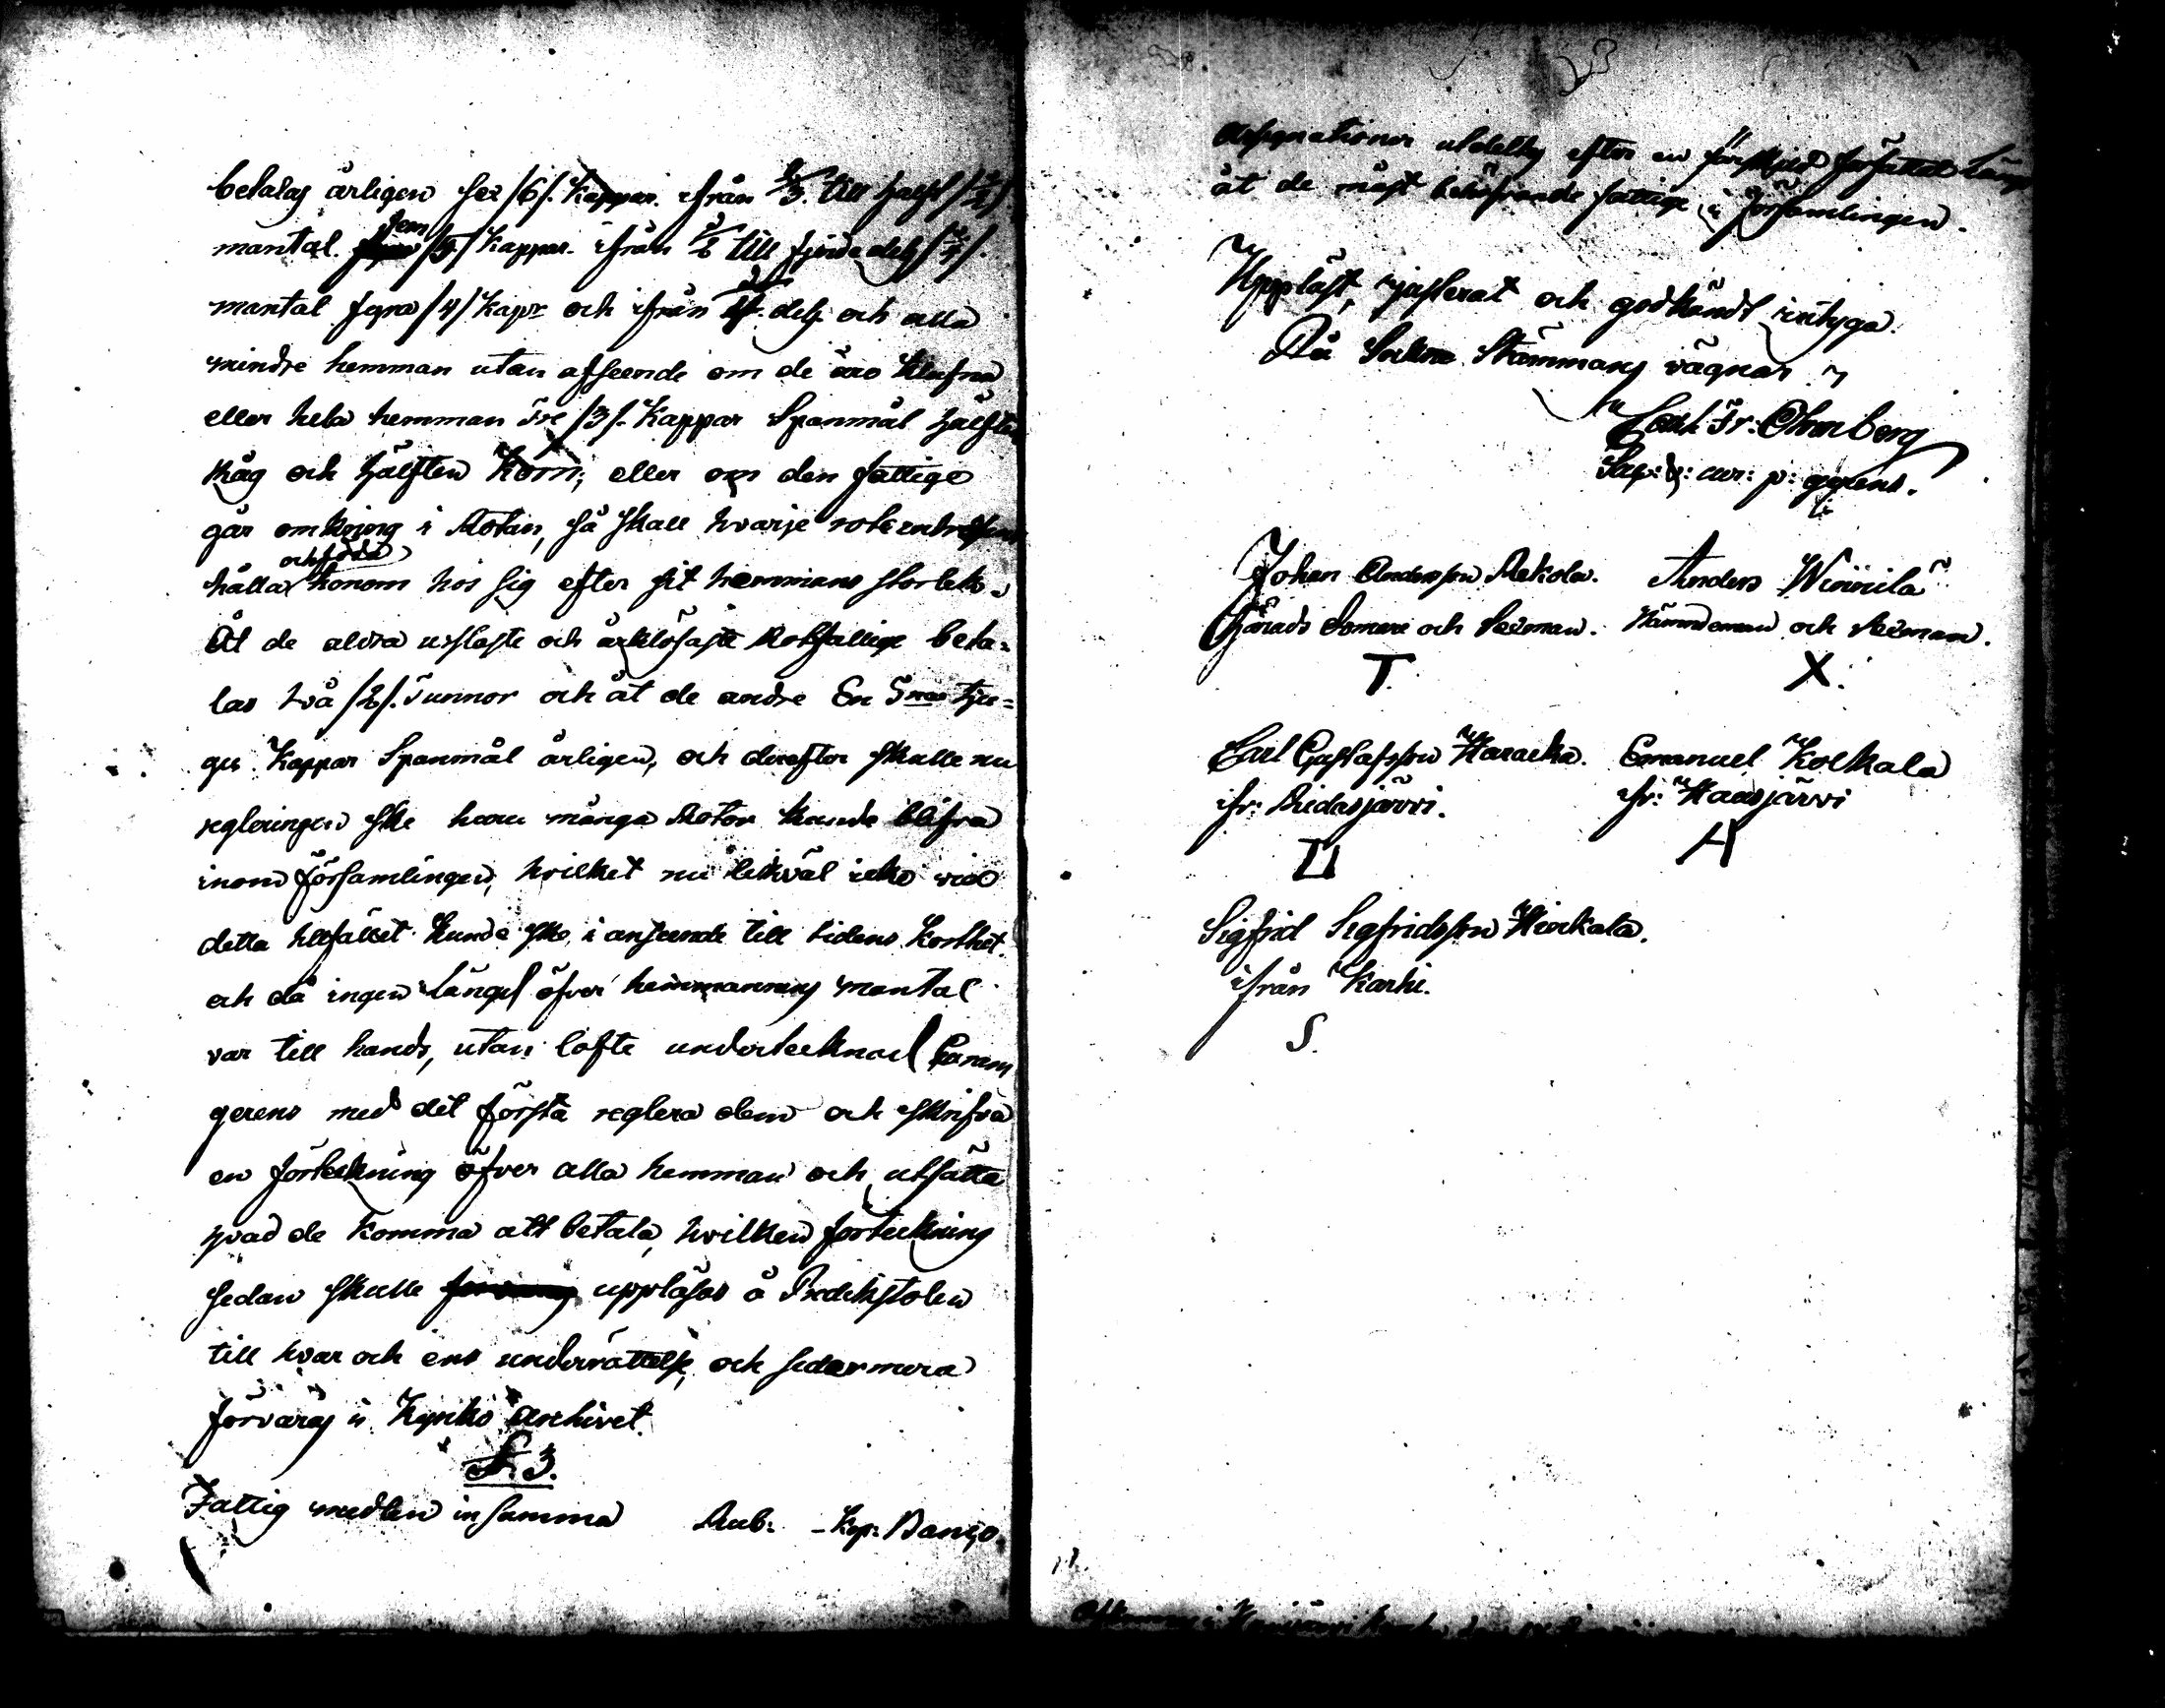 betalas årligen sex /6/. Kappar. ifrån 2/3. till halft /1/2/
mantal. fem /5/ Kappar. ifrån 1/2 till fjerdedels /1/4/.
mantal fyra /4/ Kapr och ifrån dels och alla
mindre hemman utan afseende om de äro klufna
eller hela hemman tre /3/. Kappar Spanmål hälften
Råg och hälften Korn; eller om den fattige
går omkring i Rotan, så skall hvarje rote
och föda
hålla honom hos sig efter sit hemmans storlek.
Åt de aldra uslaste och Rotfattige beta-
las två /2/. Tunnor och åt de andre En Tna tju-
gu Kappar Spanmål årligen, och derefter skulle nu
regleringen ske huru många Rotor kunde blifva
inom Församlingen, hvilket nu likväl icke vid
detta tillfället kunde ske i anseende till tidens korthet.
och då ingen längd öfver hemmanens mantal
var till hands, utan lofte undertecknad
gerens med det första reglera dem och skrifva
en förteckning öfver alla hemman och utsätta
hvad de komma att betala, hvilken förteckning
sedan skulle uppläsas å Predikstolen
till hvar och ens underrättelse, och sedermera
förvaras i Kyrko Archivet.
§. 3.
Fattig medlen in summa Rub: - Kop: Banco.
Assignationer utdeltes efter en författad Läng
åt de mäst behöfvande fattige i Församlingen.
Uppläst, justerat och godkändt intyga.
På Sockne Stämmans vägnar
Carl Fr: Ohrnberg
Sac: cur: p: gerens.
Johan Andersson Rekola. Anders Winnilä
Härads Domare och Sexman. Nämndeman och Sexman.
T. X.
Carl Gustafsson Haracka. Emanuel Kolkala
ifr: Ridasjärvi. ifr: Haasjärvi
H
Sigfrid Sigfridsson
ifrån Karhi.
S.